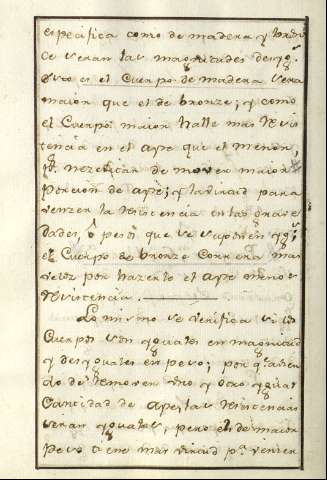 especifica como de madera y bron
ce veran las magnitudes desyg.s
el Cuerpo de madera vera
maior que el de bronze; y como
el Cuerpo maior halle mas Revis
tencia en el Ayre que el menor,
p.r nezecitar de mover maior
Porcion de Ayre; y la virtud para
venzer la Revistencia en las grave
dades, ô pesos que se suponen yg.s
el Cuerpo de bronzo Correra mas
veloz por hazerle el Ayre menor
Revistencia.
Lo mismo se verifica si los
Cuerpos son yguales en magnitud
y desyguales en pevo; por q.e avien
do de Remover uno y otro ygual
Cantidad de Ayre, las Revistencias
veran yguales, pero el de maior
Pevo tiene mas virtud p.a venzer